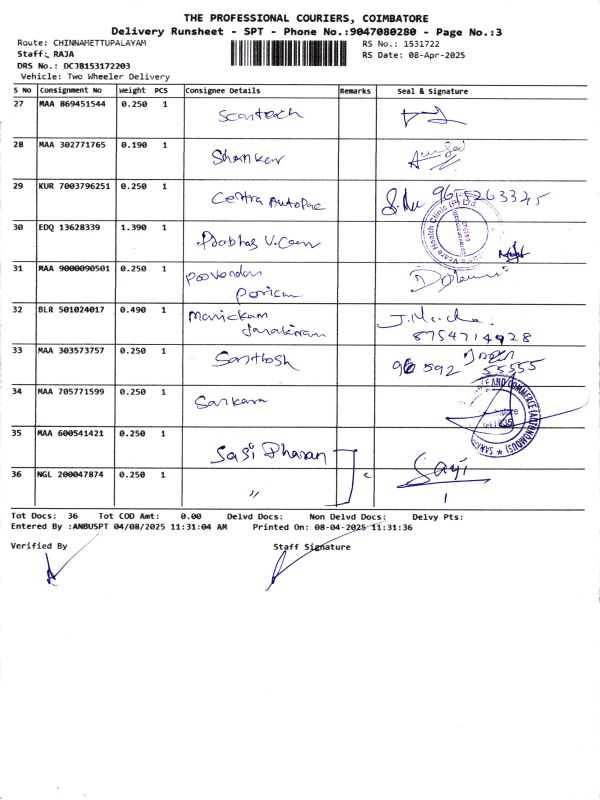 THE PROFESSIONAL COURIERS, COIMBATORE
Delivery Runsheet - SPT - Phone No.:9047080280 - Page No.:3
Route: CHINNAMETTUPALAYAM RS No.: 1531722
Staff: RAJA RS Date: 08-Apr-2025
DRS No.: DCJB153172203
Vehicle: Two Wheeler Delivery
S No Consignment No Weight PCS Consignee Details Remarks Seal & Signature
27 MAA 869451544 0.250 1
28 MAA 302771765 0.190 1 Shankar
29 KUR 7003796251 0.250 1 Centra Autopac
30 EDQ 13628339 1.390 1 Prabhas V.Care
31 MAA 9000090501 0.250 1
32 BLR 501024017 0.490 1 Manickam
Janakiram 8754714928
33 MAA 303573757 0.250 1 Santhosh
34 MAA 705771599 0.250 1 Sankara
35 MAA 600541421 0.250 1 Sasi Dharan
36 NGL 200047874 0.250 1 "
Tot Docs: 36 Tot COD Amt: 0.00 Delvd Docs: Non Delvd Docs: Delvy Pts:
Entered By :ANBUSPT 04/08/2025 11:31:04 AM Printed On: 08-04-2025 11:31:36
Verified By Staff Signature